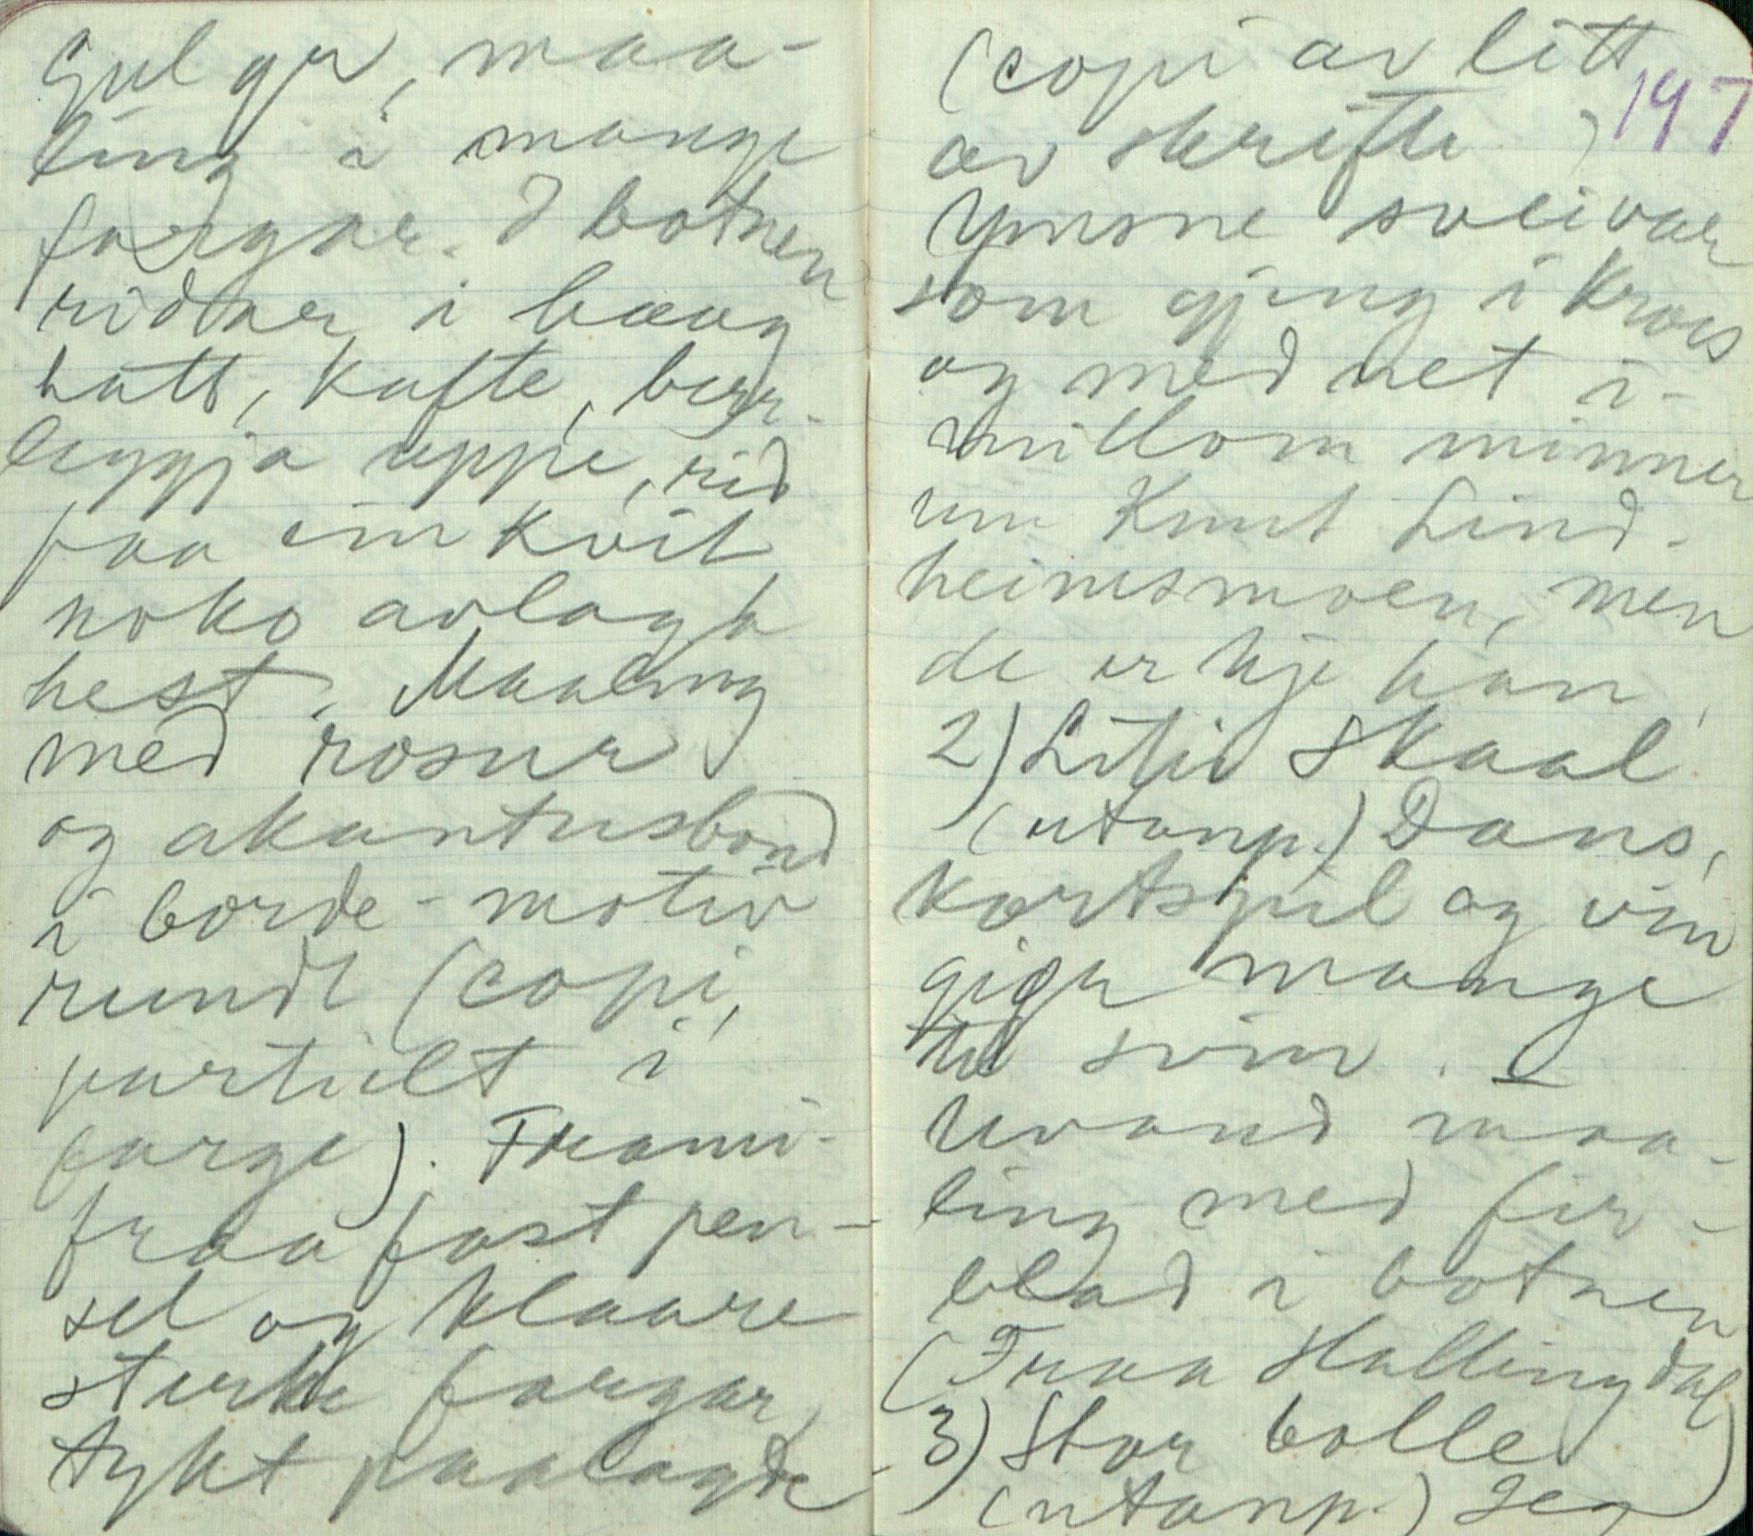 Gul gr, maa-
ling i mange
fargar. I botnen
ridar i haag
hatt, kufte,
leggja uppe, rid
paa ein kvit
noko avlagt
hest. Maaling
med rosur
og akantusbord
i borde-motiv
rundt (copi,
partielt i
farge). Frami-
fraa fast pen-
sel og klaare
sterke fargar,
tykt paalagde
(copi av litt
av skrifti)
197
Ymsne sveivar
som gjeng i kross
og med net i-
millom minner
um Knut Lind-
heimsmoen, men
de er kje han,
2) Liti skaal
(utanp.) Dans,
kortspil og vin
giør mange
til svin. –
Uvand maa-
ling med fir-
blad i botnen
(Fraa Hallingdal)
3) Stor bolle
(utanp.) Jeg